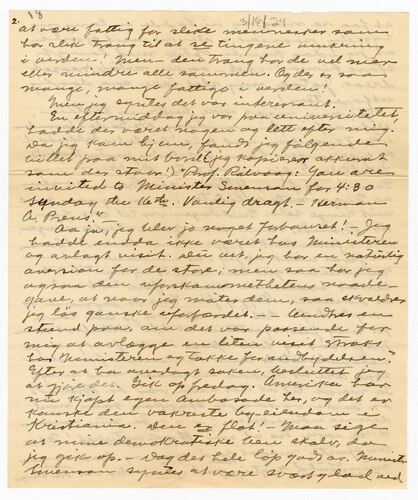 18
2.
3/18/24
at være fattig for slike mennesker som
har slik trang til at se tingene omkring
i verden! Men - den trang har de vel mer
eller mindre alle sammen. Og der er saa
mange, mange fattige i verden!
Men jeg syntes det var interessant.
En eftermiddag jeg var paa universitetet,
hadde der været nogen og lett efter mig.
Da jeg kom hjem, fandt jeg følgende
billet paa mit bord (jeg kopierer akkurat
som der staar:) "Prof. Rölvaag: You are
invited to Minister Swenson for 4:30
Sunday the 16te. Vanlig dragt. - Herman
C. Brens."
Aa ja, jeg blev jo noget forbauset! Jeg
hadde endda ikke været hos Ministeren
og avlagt visit. Du vet, jeg har en naturlig
aversion for de store; men saa har jeg
ogsaa den uforskammethetens naade-
gave, at naar jeg møter dem, saa skvaldrer
jeg løs ganske uforfærdet. -
stund paa, om det var passende for
mig at avlægge en liten visit straks
hos Ministeren og takke for indbydelsen.
Efter at ha overlagt saken, besluttet jeg
at gjøre det. Gik op fredag. Amerika har
nu kjøpt egen ambasade her, og det er
kanske den vakreste by-eiendom i
Kristiania. Den er flot! - Maa sige
at mine demokratiske ben skalv, da
jeg gik op. - Dog det hele løp godt av. Minister
Swenson syntes at være svært glad ved